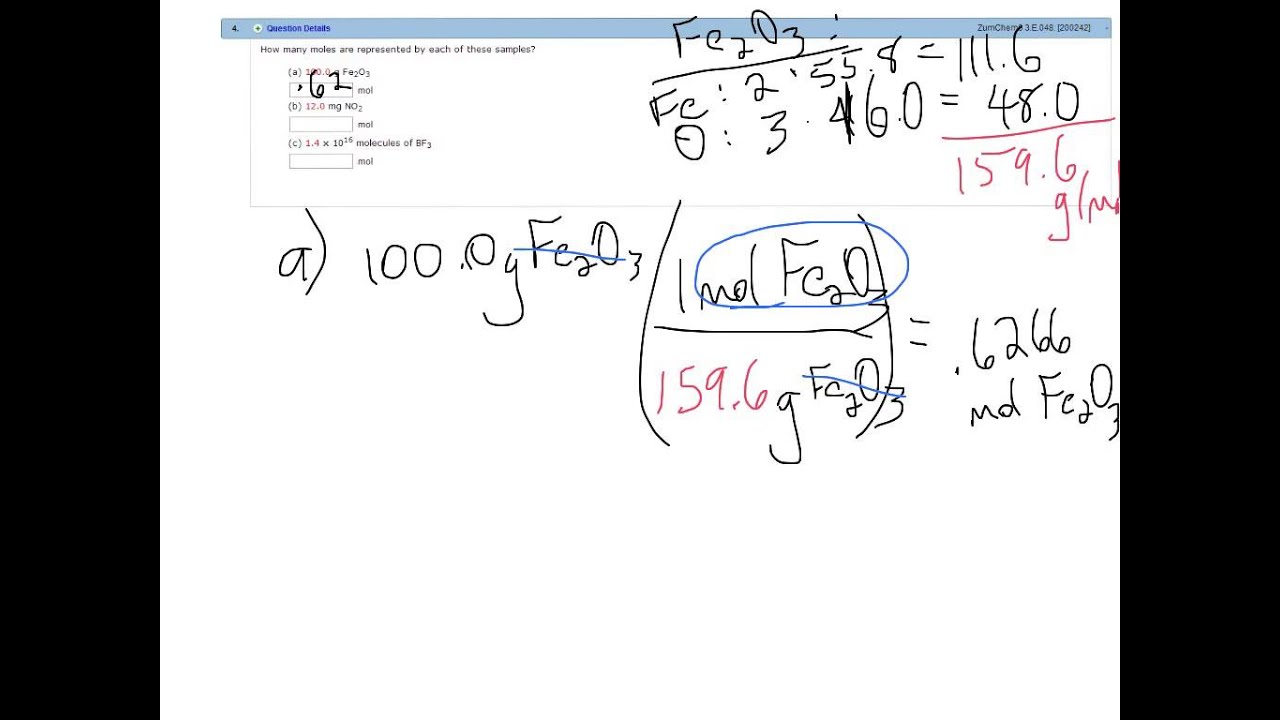 4. Question Details ZumChem8 3.E.048. [200242]
How many moles are represented by each of these samples?
(a) 100.0 g Fe₂O₃
.62 mol
(b) 12.0 mg NO₂
mol
(c) 1.4 × 10¹⁶ molecules of BF₃
mol
Fe₂O₃ :
Fe : 2 · 55.8 = 111.6
O : 3 · 16.0 = 48.0
159.6
g/mo
a) 100.0 g Fe₂O₃ (1 mol Fe₂O₃ / 159.6 g Fe₂O₃) = .6266
mol Fe₂O₃